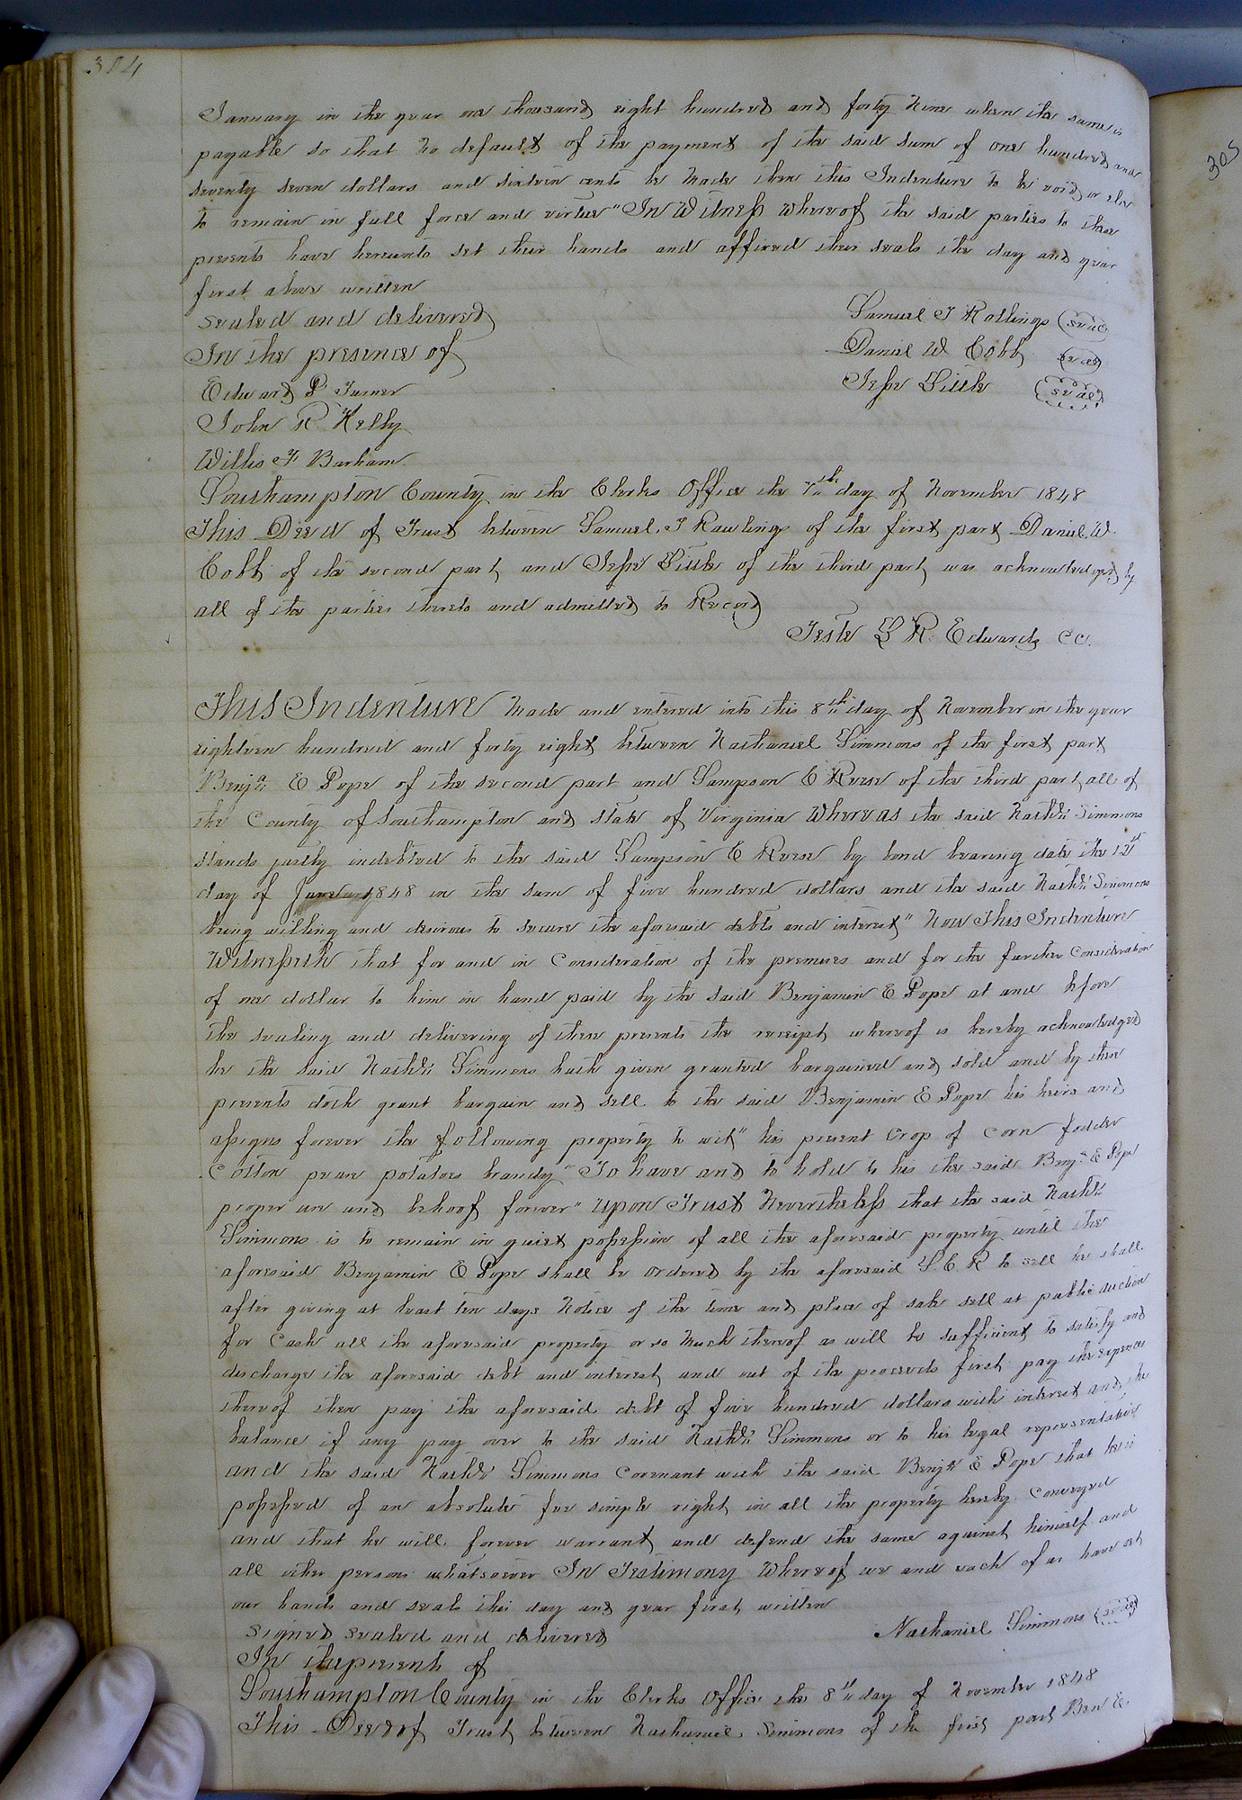 384
January in the year one thousand eight hundred and forty nine when the same is
payable so that no default of the payment of the said sum of one hundred and
seventy seven dollars and sixteen cents be made then this Indenture to be void or else
to remain in full force and virtue" In Witness whereof the said parties to these
presents have hereunto set their hands and affixed their seals the day and year
first above written
Sealed and delivered Samuel J Rollings (seal)
In the presence of Daniel W Cobb (seal)
Edward P Turner Jesse Little (seal)
John R Kelly
Willis F Barham
Southampton County in the Clerks Office the 7th day of November 1848
This Deed of Trust between Samuel J Rawlings of the first part Daniel W
Cobb of the second part and Jesse Little of the third part was acknowledged by
all of the parties thereto and admitted to Record
Teste L R Edwards CC.
This Indenture Made and entered into this 8th day of November in the year
eighteen hundred and forty eight between Nathaniel Simmons of the first part
Benja E Pope of the second part and Sampson C Reese of the third part all of
the County of Southampton and state of Virginia Whereas the said Nathl Simmons
stands justly indebted to the said Sampson C Reese by bond bearing date the
day of 1848 in the sum of five hundred dollars and the said Nathl Simmons
being willing and desirous to secure the aforesaid debts and interest" Now This Indenture
Witnesseth that for and in Consideration of the premises and for the further Consideration
of one dollar to him in hand paid by the said Benjamin E Pope at and before
the sealing and delivering of these presents the receipt whereof is hereby acknowledged
he the said Nathl Simmons hath given granted bargained and sold and by these
presents doth grant bargain and sell to the said Benjamin E Pope his heirs and
assigns forever the following property to wit" his present Crop of Corn fodder
Cotton pease potatoes brandy" To have and to hold to his the said Benja E Pope
proper use and behoof forever" Upon Trust Nevertheless that the said Nathl
Simmons is to remain in quiet possession of all the aforesaid property until the
aforesaid Benjamin E Pope shall be ordered by the aforesaid S. C. R to sell he shall
after giving at least ten days Notice of the time and place of sale sell at public auction
for Cash all the aforesaid property or so Much thereof as will be sufficient to satisfy and
discharge the aforesaid debt and interest, and out of the proceeds first pay the expences
thereof then pay the aforesaid debt of five hundred dollars with interest and the
balance if any pay over to the said Nathl Simmons or to his legal representative
and the said Nathl Simmons Covenant with the said Benja E Pope that he is
possessed of an absolute fee simple right in all the property hereby Conveyed
and that he will forever warrant and defend the same against himself and
all other persons whatsoever In Testimony Whereof we and each of us have set
our hands and seals this day and year first written
Signed Sealed and delivered Nathaniel Simmons (seal)
In the presents of
Southampton County in the Clerks Office the 8th day of November 1848
This Deed of Trust between Nathaniel Simmons of the first part Ben E
305